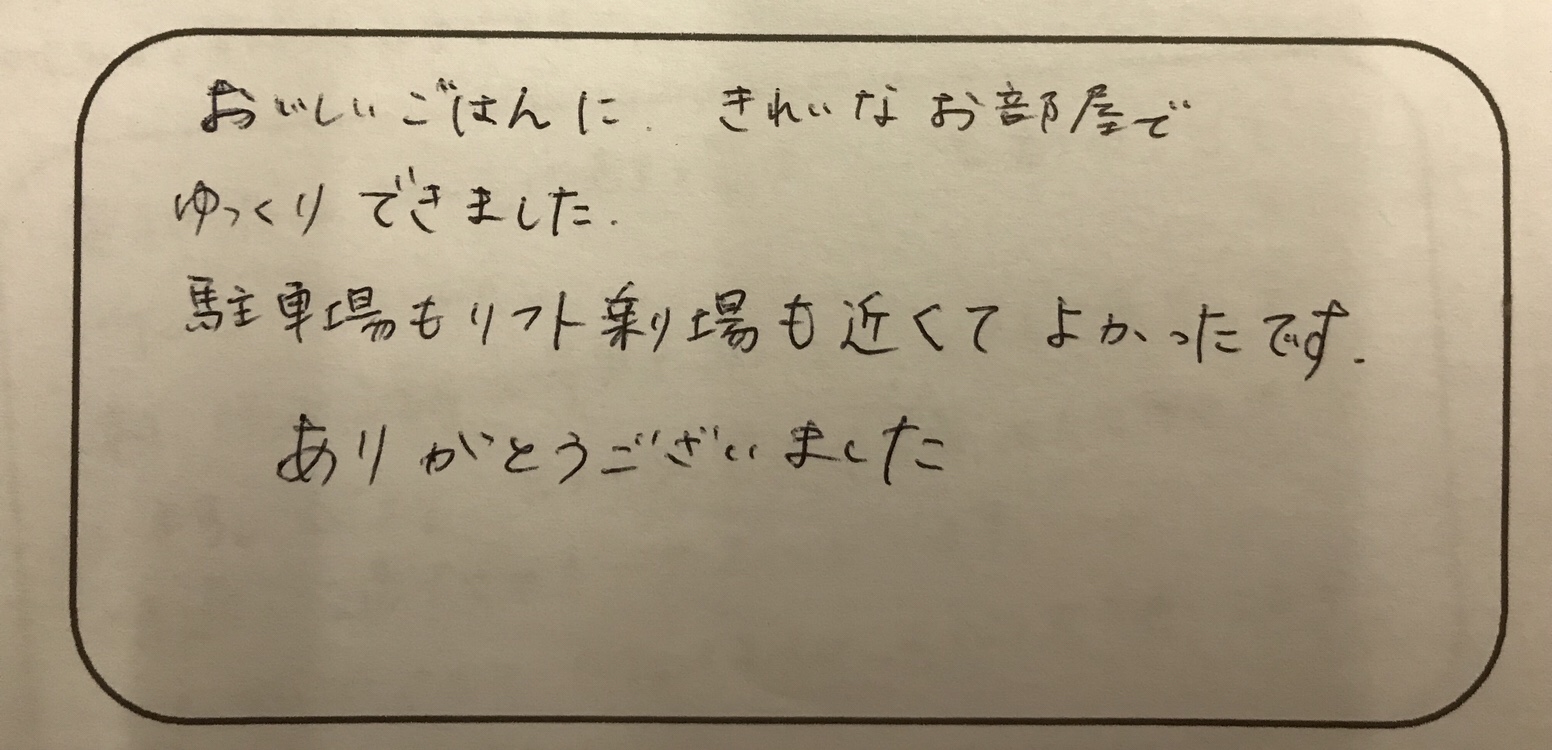 おいしいごはんに、きれいなお部屋で
ゆっくりできました.
駐車場もリフト乗り場も近くてよかったです.
ありがとうございました